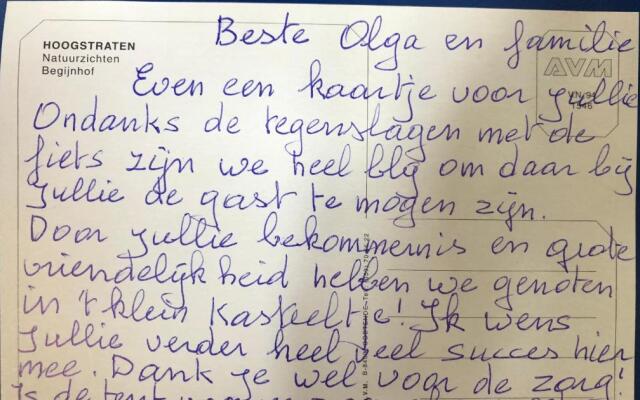 HOOGSTRATEN
Natuurzichten
Begijnhof
AVM
Beste Olga en familie
Even een kaartje voor jullie
Ondanks de tegenslagen met de
fiets zijn we heel blij om daar bij
jullie de gast te mogen zijn.
Door jullie bekommernis en grote
vriendelijkheid hebben we genoten
in 't klein Kasteeltje! Ik wens
jullie verder heel veel succes hier
mee. Dank je wel voor de zorg!
Is de tent